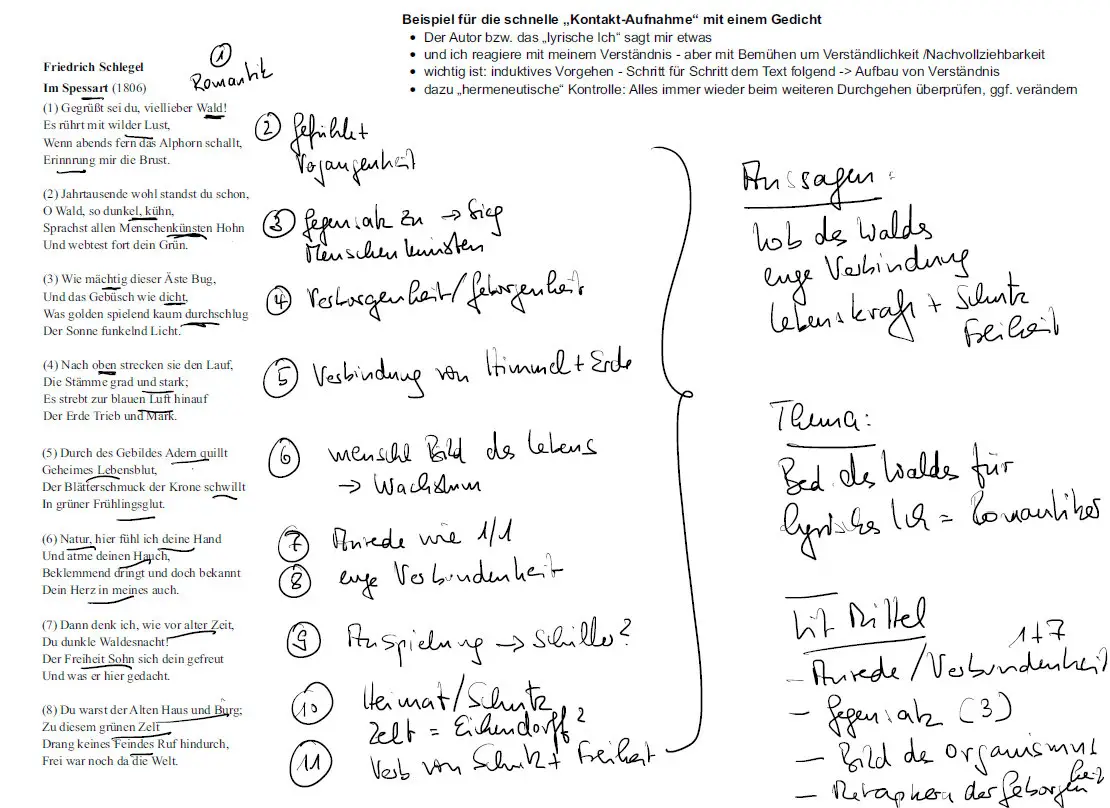 Beispiel für die schnelle „Kontakt-Aufnahme“ mit einem Gedicht
• Der Autor bzw. das „lyrische Ich“ sagt mir etwas
• und ich reagiere mit meinem Verständnis - aber mit Bemühen um Verständlichkeit /Nachvollziehbarkeit
• wichtig ist: induktives Vorgehen - Schritt für Schritt dem Text folgend -> Aufbau von Verständnis
• dazu „hermeneutische“ Kontrolle: Alles immer wieder beim weiteren Durchgehen überprüfen, ggf. verändern
Friedrich Schlegel
Im Spessart (1806)
(1) Gegrüßt sei du, viellieber Wald!
Es rührt mit wilder Lust,
Wenn abends fern das Alphorn schallt,
Erinnrung mir die Brust.
(2) Jahrtausende wohl standst du schon,
O Wald, so dunkel, kühn,
Sprachst allen Menschenkünsten Hohn
Und webtest fort dein Grün.
(3) Wie mächtig dieser Äste Bug,
Und das Gebüsch wie dicht,
Was golden spielend kaum durchschlug
Der Sonne funkelnd Licht.
(4) Nach oben strecken sie den Lauf,
Die Stämme grad und stark;
Es strebt zur blauen Luft hinauf
Der Erde Trieb und Mark.
(5) Durch des Gebildes Adern quillt
Geheimes Lebensblut,
Der Blätterschmuck der Krone schwillt
In grüner Frühlingsglut.
(6) Natur, hier fühl ich deine Hand
Und atme deinen Hauch,
Beklemmend dringt und doch bekannt
Dein Herz in meines auch.
(7) Dann denk ich, wie vor alter Zeit,
Du dunkle Waldesnacht!
Der Freiheit Sohn sich dein gefreut
Und was er hier gedacht.
(8) Du warst der Alten Haus und Burg;
Zu diesem grünen Zelt
Drang keines Feindes Ruf hindurch,
Frei war noch da die Welt.
1
Romantik
2 Gefühle +
Vergangenheit
3 Gegensatz zu → Sieg
Menschenkünsten
4 Verborgenheit/Geborgenheit
5 Verbindung von Himmel + Erde
6 menschl Bild des Lebens
→ Wachstum
7 Anrede wie 1/1
8 enge Verbundenheit
9 Anspielung → Schiller?
10 Heimat/Schutz
Zelt = Eichendorff?
11 Verb von Schutz + Freiheit
Aussagen:
Lob des Walds
enge Verbindung
Lebenskraft + Schutz
Freiheit
Thema:
Bed des Walds für
lyrisches Ich = Romantiker
Lit Mittel
1+7
- Anrede/Verbundenheit
- Gegensatz (3)
- Bild des Organismus
- Metaphern der Geborgenheit